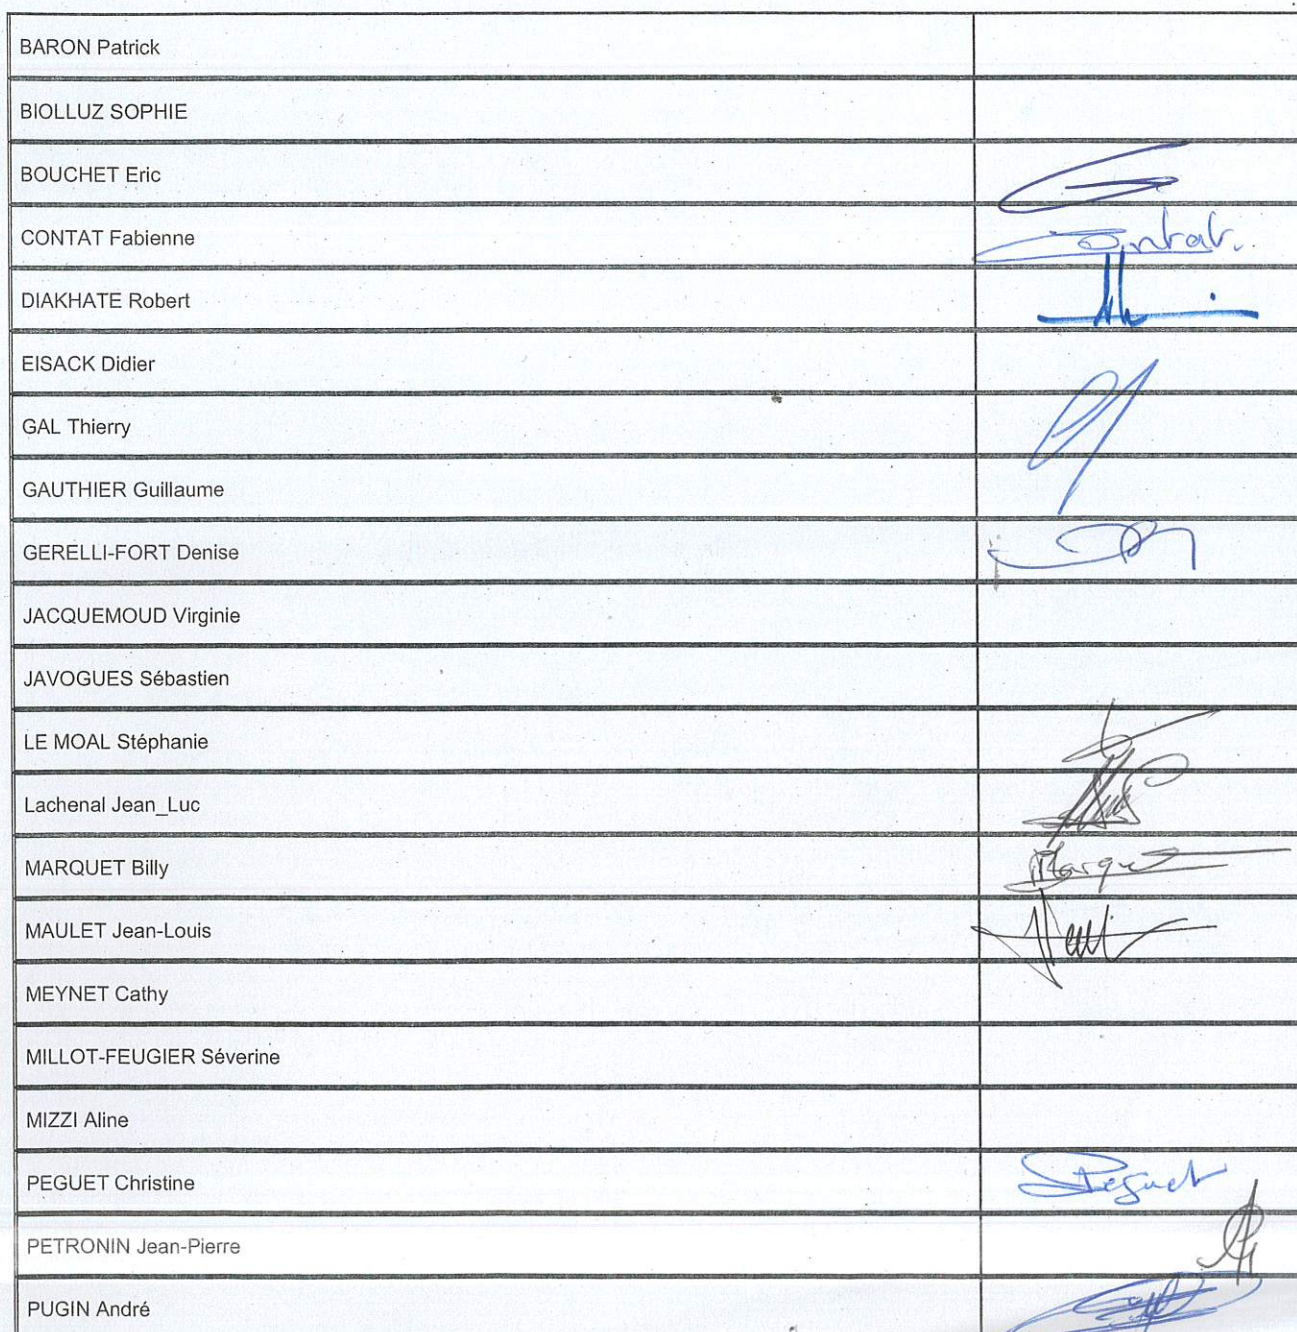 BARON Patrick
BIOLLUZ SOPHIE
BOUCHET Eric
CONTAT Fabienne
Contat.
DIAKHATE Robert
EISACK Didier
GAL Thierry
GAUTHIER Guillaume
GERELLI-FORT Denise
JACQUEMOUD Virginie
JAVOGUES Sébastien
LE MOAL Stéphanie
Lachenal Jean_Luc
MARQUET Billy
Marquet
MAULET Jean-Louis
MEYNET Cathy
MILLOT-FEUGIER Séverine
MIZZI Aline
PEGUET Christine
Peguet
PETRONIN Jean-Pierre
PUGIN André